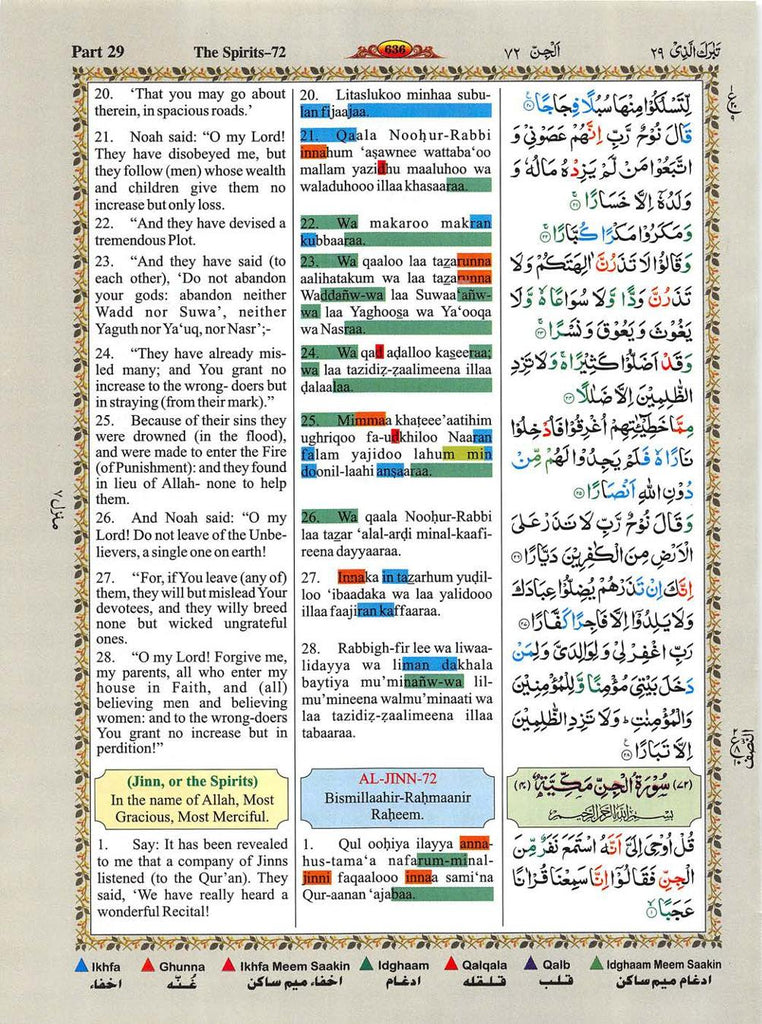 Part 29
The Spirits–72
636
٧٢ اَلْجِنّ
تَبٰرَكَ الَّذِیْ ٢٩
20. ‘That you may go about
therein, in spacious roads.’
21. Noah said: “O my Lord!
They have disobeyed me, but
they follow (men) whose wealth
and children give them no
increase but only loss.
22. “And they have devised a
tremendous Plot.
23. “And they have said (to
each other), ‘Do not abandon
your gods: abandon neither
Wadd nor Suwa’, neither
Yaguth nor Ya‘uq, nor Nasr’;-
24. “They have already mis-
led many; and You grant no
increase to the wrong- doers but
in straying (from their mark).”
25. Because of their sins they
were drowned (in the flood),
and were made to enter the Fire
(of Punishment): and they found
in lieu of Allah- none to help
them.
26. And Noah said: “O my
Lord! Do not leave of the Unbe-
lievers, a single one on earth!
27. “For, if You leave (any of)
them, they will but mislead Your
devotees, and they willy breed
none but wicked ungrateful
ones.
28. “O my Lord! Forgive me,
my parents, all who enter my
house in Faith, and (all)
believing men and believing
women: and to the wrong-doers
You grant no increase but in
perdition!”
(Jinn, or the Spirits)
In the name of Allah, Most
Gracious, Most Merciful.
1. Say: It has been revealed
to me that a company of Jinns
listened (to the Qur’an). They
said, ‘We have really heard a
wonderful Recital!
20. Litaslukoo minhaa subu-
lan fijaajaa.
21. Qaala Nooḥur-Rabbi
innahum ‘aṣawnee wattaba‘oo
mallam yazidhu maaluhoo wa
waladuhooo illaa khasaaraa.
22. Wa makaroo makran
kubbaaraa.
23. Wa qaaloo laa tazarunna
aalihatakum wa laa tazarunna
Waddañw-wa laa Suwaa‘añw-
wa laa Yaghooṡa wa Ya‘ooqa
wa Nasraa.
24. Wa qad aḍalloo kaṡeeraa;
wa laa tazidiẓ-ẓaalimeena illaa
ḍalaalaa.
25. Mimmaa khaṭeee’aatihim
ughriqoo fa-udkhiloo Naaran
falam yajidoo lahum min
doonil-laahi anṣaaraa.
26. Wa qaala Nooḥur-Rabbi
laa tazar ‘alal-arḍi minal-kaafi-
reena dayyaaraa.
27. Innaka in tazarhum yuḍil-
loo ‘ibaadaka wa laa yalidooo
illaa faajiran kaffaaraa.
28. Rabbigh-fir lee wa liwaa-
lidayya wa liman dakhala
baytiya mu’minañw-wa lil-
mu’mineena walmu’minaati wa
laa tazidiẓ-ẓaalimeena illaa
tabaaraa.
AL-JINN-72
Bismillaahir-Raḥmaanir
Raḥeem.
1. Qul ooḥiya ilayya anna-
hus-tama‘a nafarum-minal-
jinni faqaalooo innaa sami‘na
Qur-aanan ‘ajabaa.
لِّتَسْلُكُوْا مِنْهَا سُبُلًا فِجَاجًا ﴿٢٠﴾
قَالَ نُوْحٌ رَّبِّ اِنَّهُمْ عَصَوْنِیْ وَ
اتَّبَعُوْا مَنْ لَّمْ یَزِدْهُ مَالُهٗ وَ
وَلَدُهٗۤ اِلَّا خَسَارًا ﴿٢١﴾
وَمَكَرُوْا مَكْرًا كُبَّارًا ﴿٢٢﴾
وَقَالُوْا لَا تَذَرُنَّ اٰلِهَتَكُمْ وَلَا
تَذَرُنَّ وَدًّا وَّلَا سُوَاعًا ۬ۙ وَّلَا
یَغُوْثَ وَیَعُوْقَ وَنَسْرًا ﴿٢٣﴾
وَقَدْ اَضَلُّوْا كَثِیْرًا ۬ۚ وَلَا تَزِدِ
الظّٰلِمِیْنَ اِلَّا ضَلٰلًا ﴿٢٤﴾
مِمَّا خَطِیْٓـٰٔتِهِمْ اُغْرِقُوْا فَاُدْخِلُوْا
نَارًا ۬ۙ فَلَمْ یَجِدُوْا لَهُمْ مِّنْ
دُوْنِ اللّٰهِ اَنْصَارًا ﴿٢٥﴾
وَقَالَ نُوْحٌ رَّبِّ لَا تَذَرْ عَلَی
الْاَرْضِ مِنَ الْكٰفِرِیْنَ دَیَّارًا ﴿٢٦﴾
اِنَّكَ اِنْ تَذَرْهُمْ یُضِلُّوْا عِبَادَكَ
وَلَا یَلِدُوْۤا اِلَّا فَاجِرًا كَفَّارًا ﴿٢٧﴾
رَبِّ اغْفِرْ لِیْ وَلِوَالِدَیَّ وَلِمَنْ
دَخَلَ بَیْتِیَ مُؤْمِنًا وَّلِلْمُؤْمِنِیْنَ
وَالْمُؤْمِنٰتِ ؕ وَلَا تَزِدِ الظّٰلِمِیْنَ
اِلَّا تَبَارًا ﴿٢٨﴾
(٧٢) سُوْرَةُ الْجِنِّ مَكِّیَّةٌ (٤٠)
بِسْمِ اللّٰهِ الرَّحْمٰنِ الرَّحِیْمِ
قُلْ اُوْحِیَ اِلَیَّ اَنَّهُ اسْتَمَعَ نَفَرٌ مِّنَ
الْجِنِّ فَقَالُوْۤا اِنَّا سَمِعْنَا قُرْاٰنًا
عَجَبًا ﴿١﴾
منزل ٧
النّصف
Ikhfa Ghunna Ikhfa Meem Saakin Idghaam Qalqala Qalb Idghaam Meem Saakin
اخفاء غُنَّه اخفاء میم ساکن ادغام قلقله قلب ادغام میم ساکن